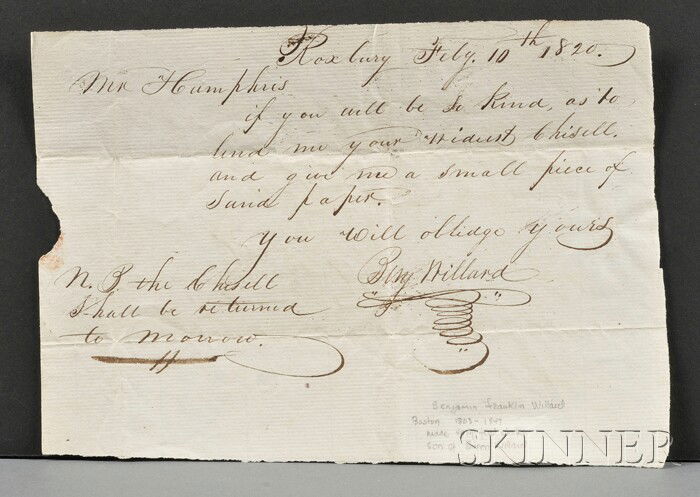 Roxbury Feby. 10th 1820.
Mr Humphris
if you will be so kind, as to
lend me your widest Chisell.
and give me a small piece of
Sand paper.
You will oblidge yours
Benj Willard
N. B. the Chisell
Shall be returned
to morrow.
Benjamin Franklin Willard
Boston 1803-1847
made
son of
SKINNER